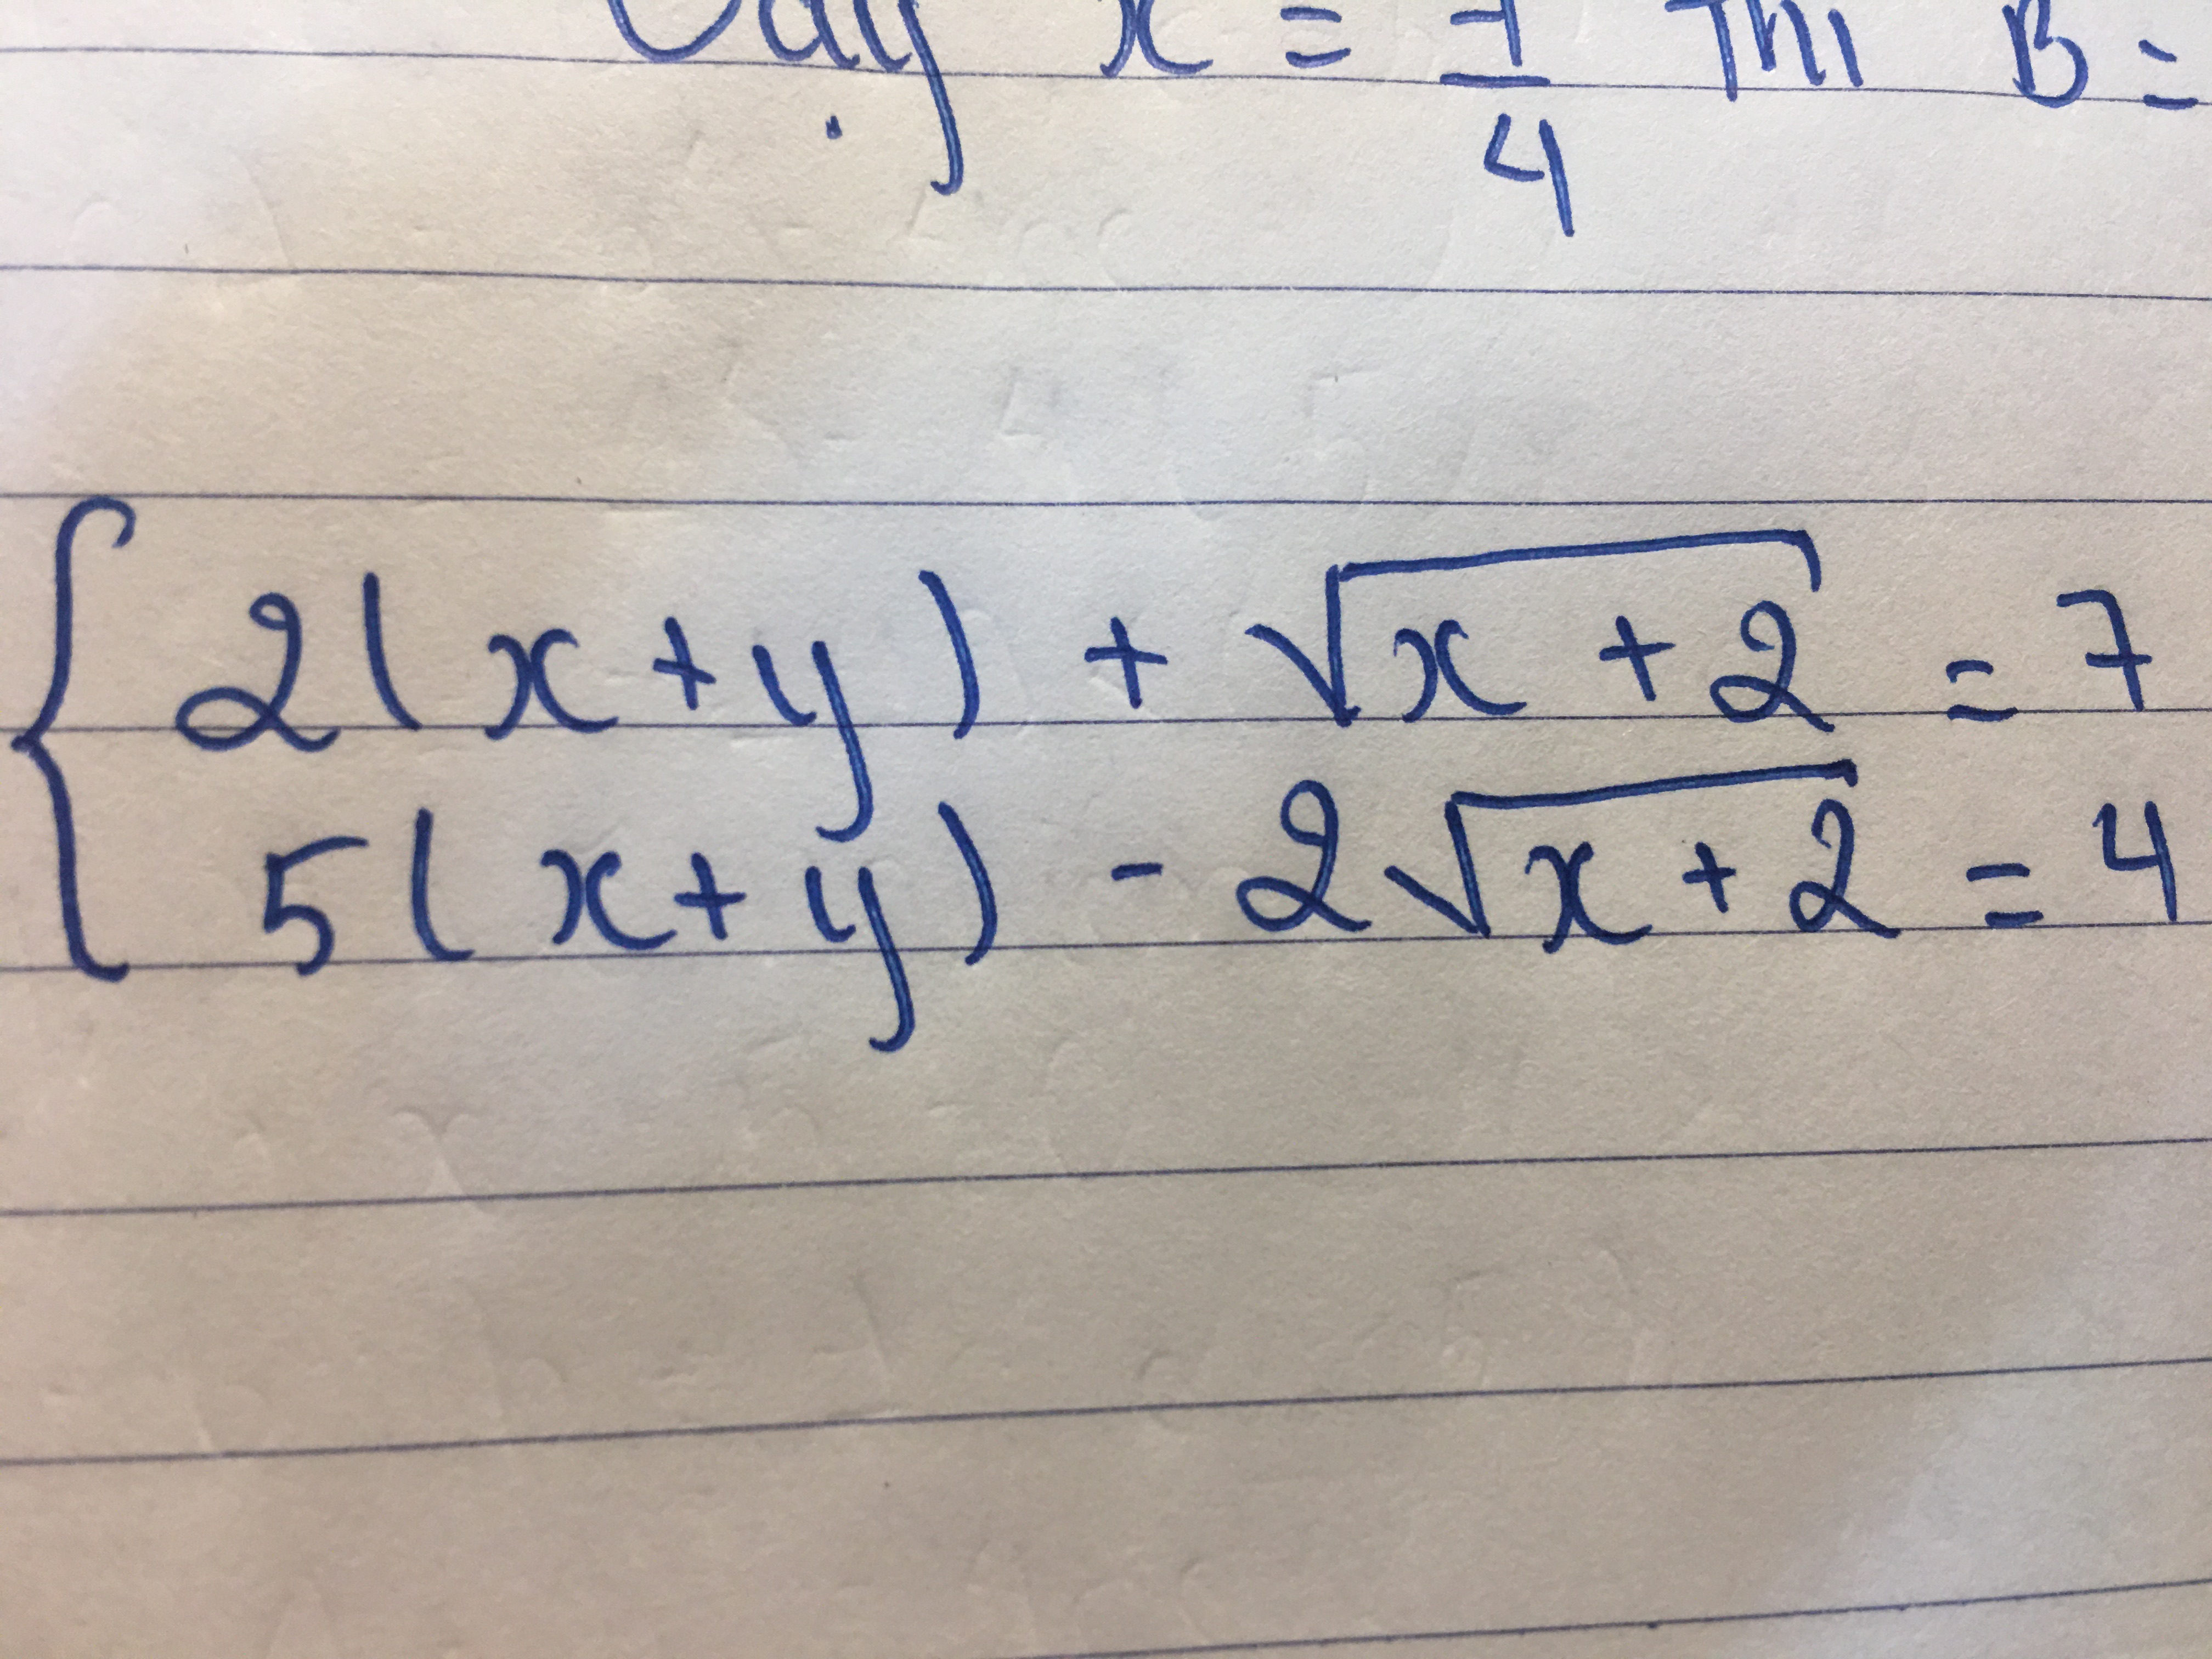 Vậy x = 1/4 Thì B =
{ 2(x+y) + √(x+2) = 7
5(x+y) - 2√(x+2) = 4